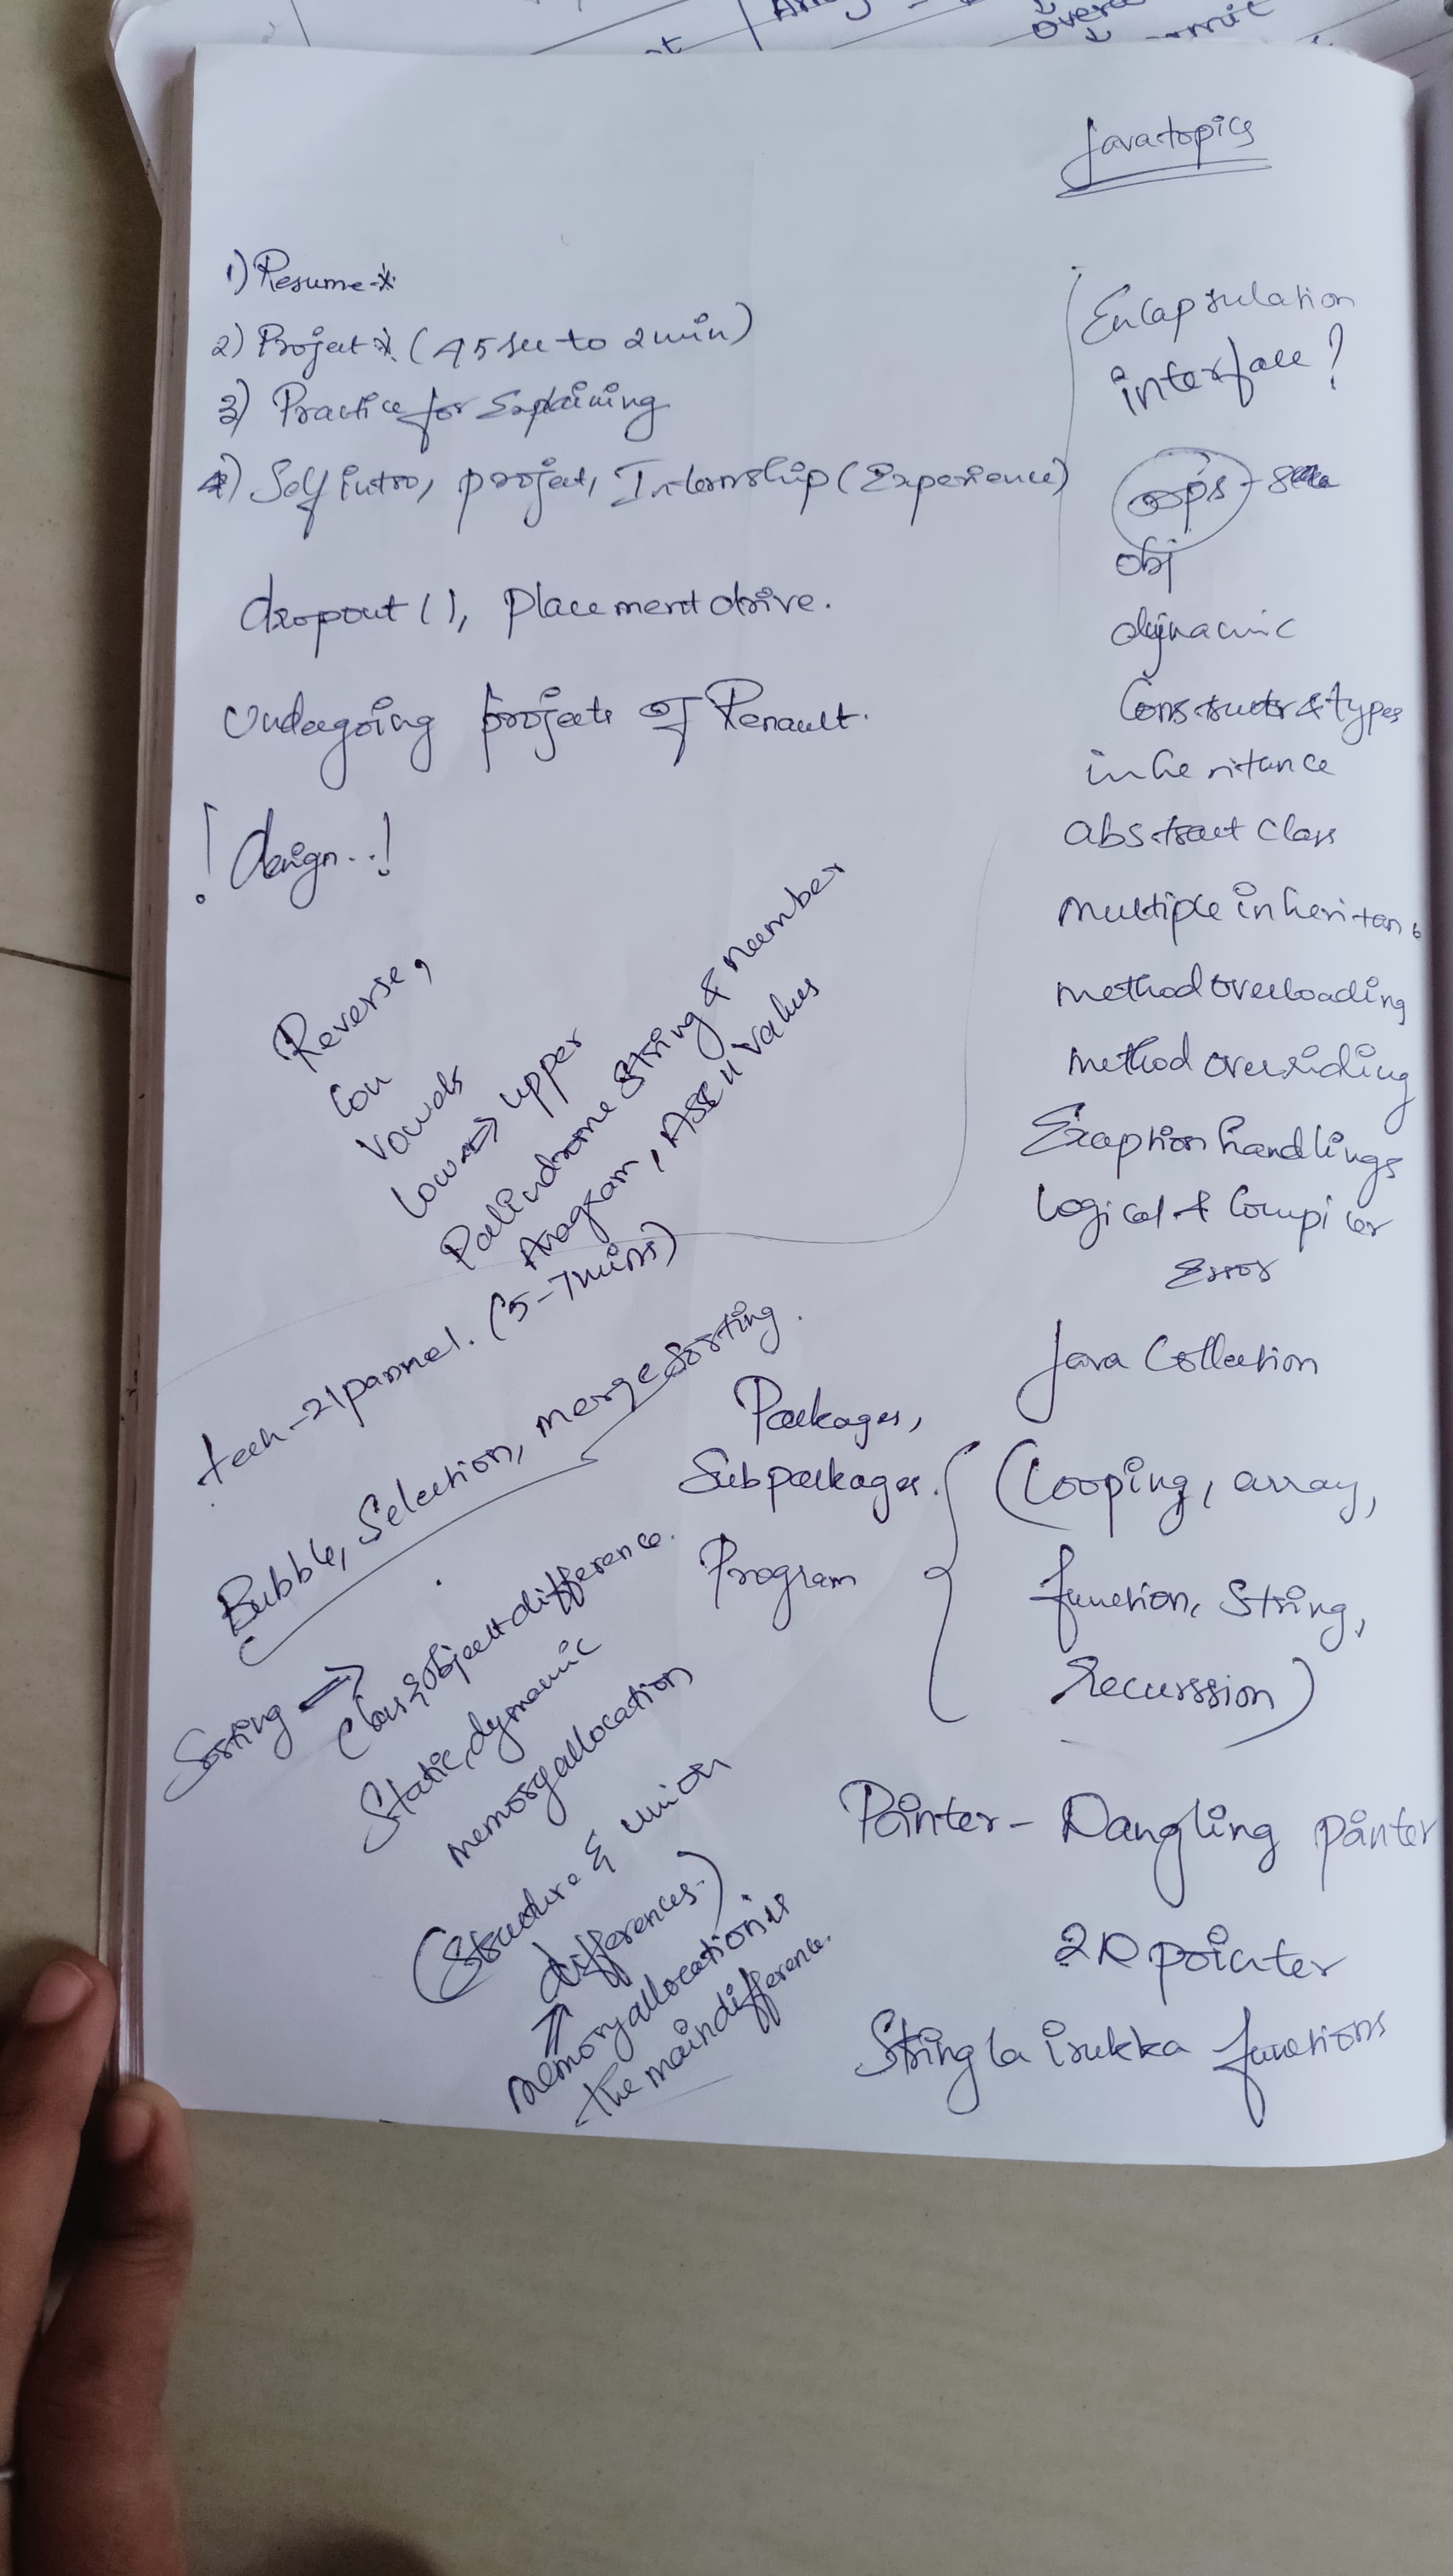 Java topics
1) Resume *
2) Projeat * (45 sec to 2 min)
3) Practice for Explaining
4) Self intro, project, Internship (Experience)
dropout ( ), placement drive.
Undergoing projects of Renault.
! design..!
Reverse,
Con
Vowels
Low => upper
Palindrome String & number
Anagram, ASCII values
tech - 21 pannel. (5-7 mins)
Bubble, Selection, merge Sorting.
Sorting =>
Class & object difference.
Static, dynamic
memory allocation
(Structure & union
differences.)
memory allocation is
the main difference.
Encapsulation
interface?
oops -
obj
dynamic
Constructr & types
inheritance
abstract class
multiple inheritan
method overloading
method overriding
Exception handlings
Logical & Compiler
Error
Java Collection
Packages,
Subpackages.
Program
(Looping, array,
function, String,
recurssion)
Pointer - Dangling pointer
2D pointer
String la irukka functions